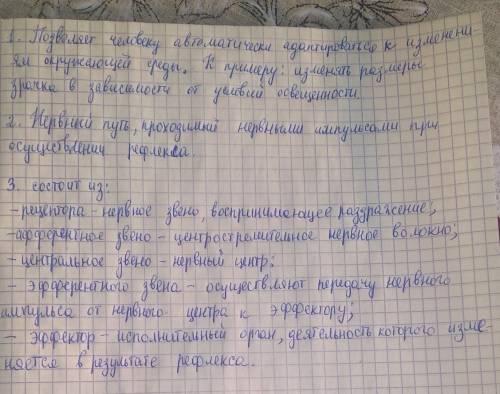 1. Позволяет человеку автоматически адаптироваться к изменени
ям окружающей среды. К примеру: изменять размеры
зрачка в зависимости от условий освещенности.
2. Нервный путь, проходимый нервными импульсами при
осуществлении рефлекса.
3. состоит из:
- рецептора - нервное звено, воспринимающее раздражение;
- афферентное звено - центростремительное нервное волокно;
- центральное звено - нервный центр;
- эфферентного звена - осуществляют передачу нервного
импульса от нервного центра к эффектору;
- эффектор - исполнительный орган, деятельность которого изме-
няется в результате рефлекса.